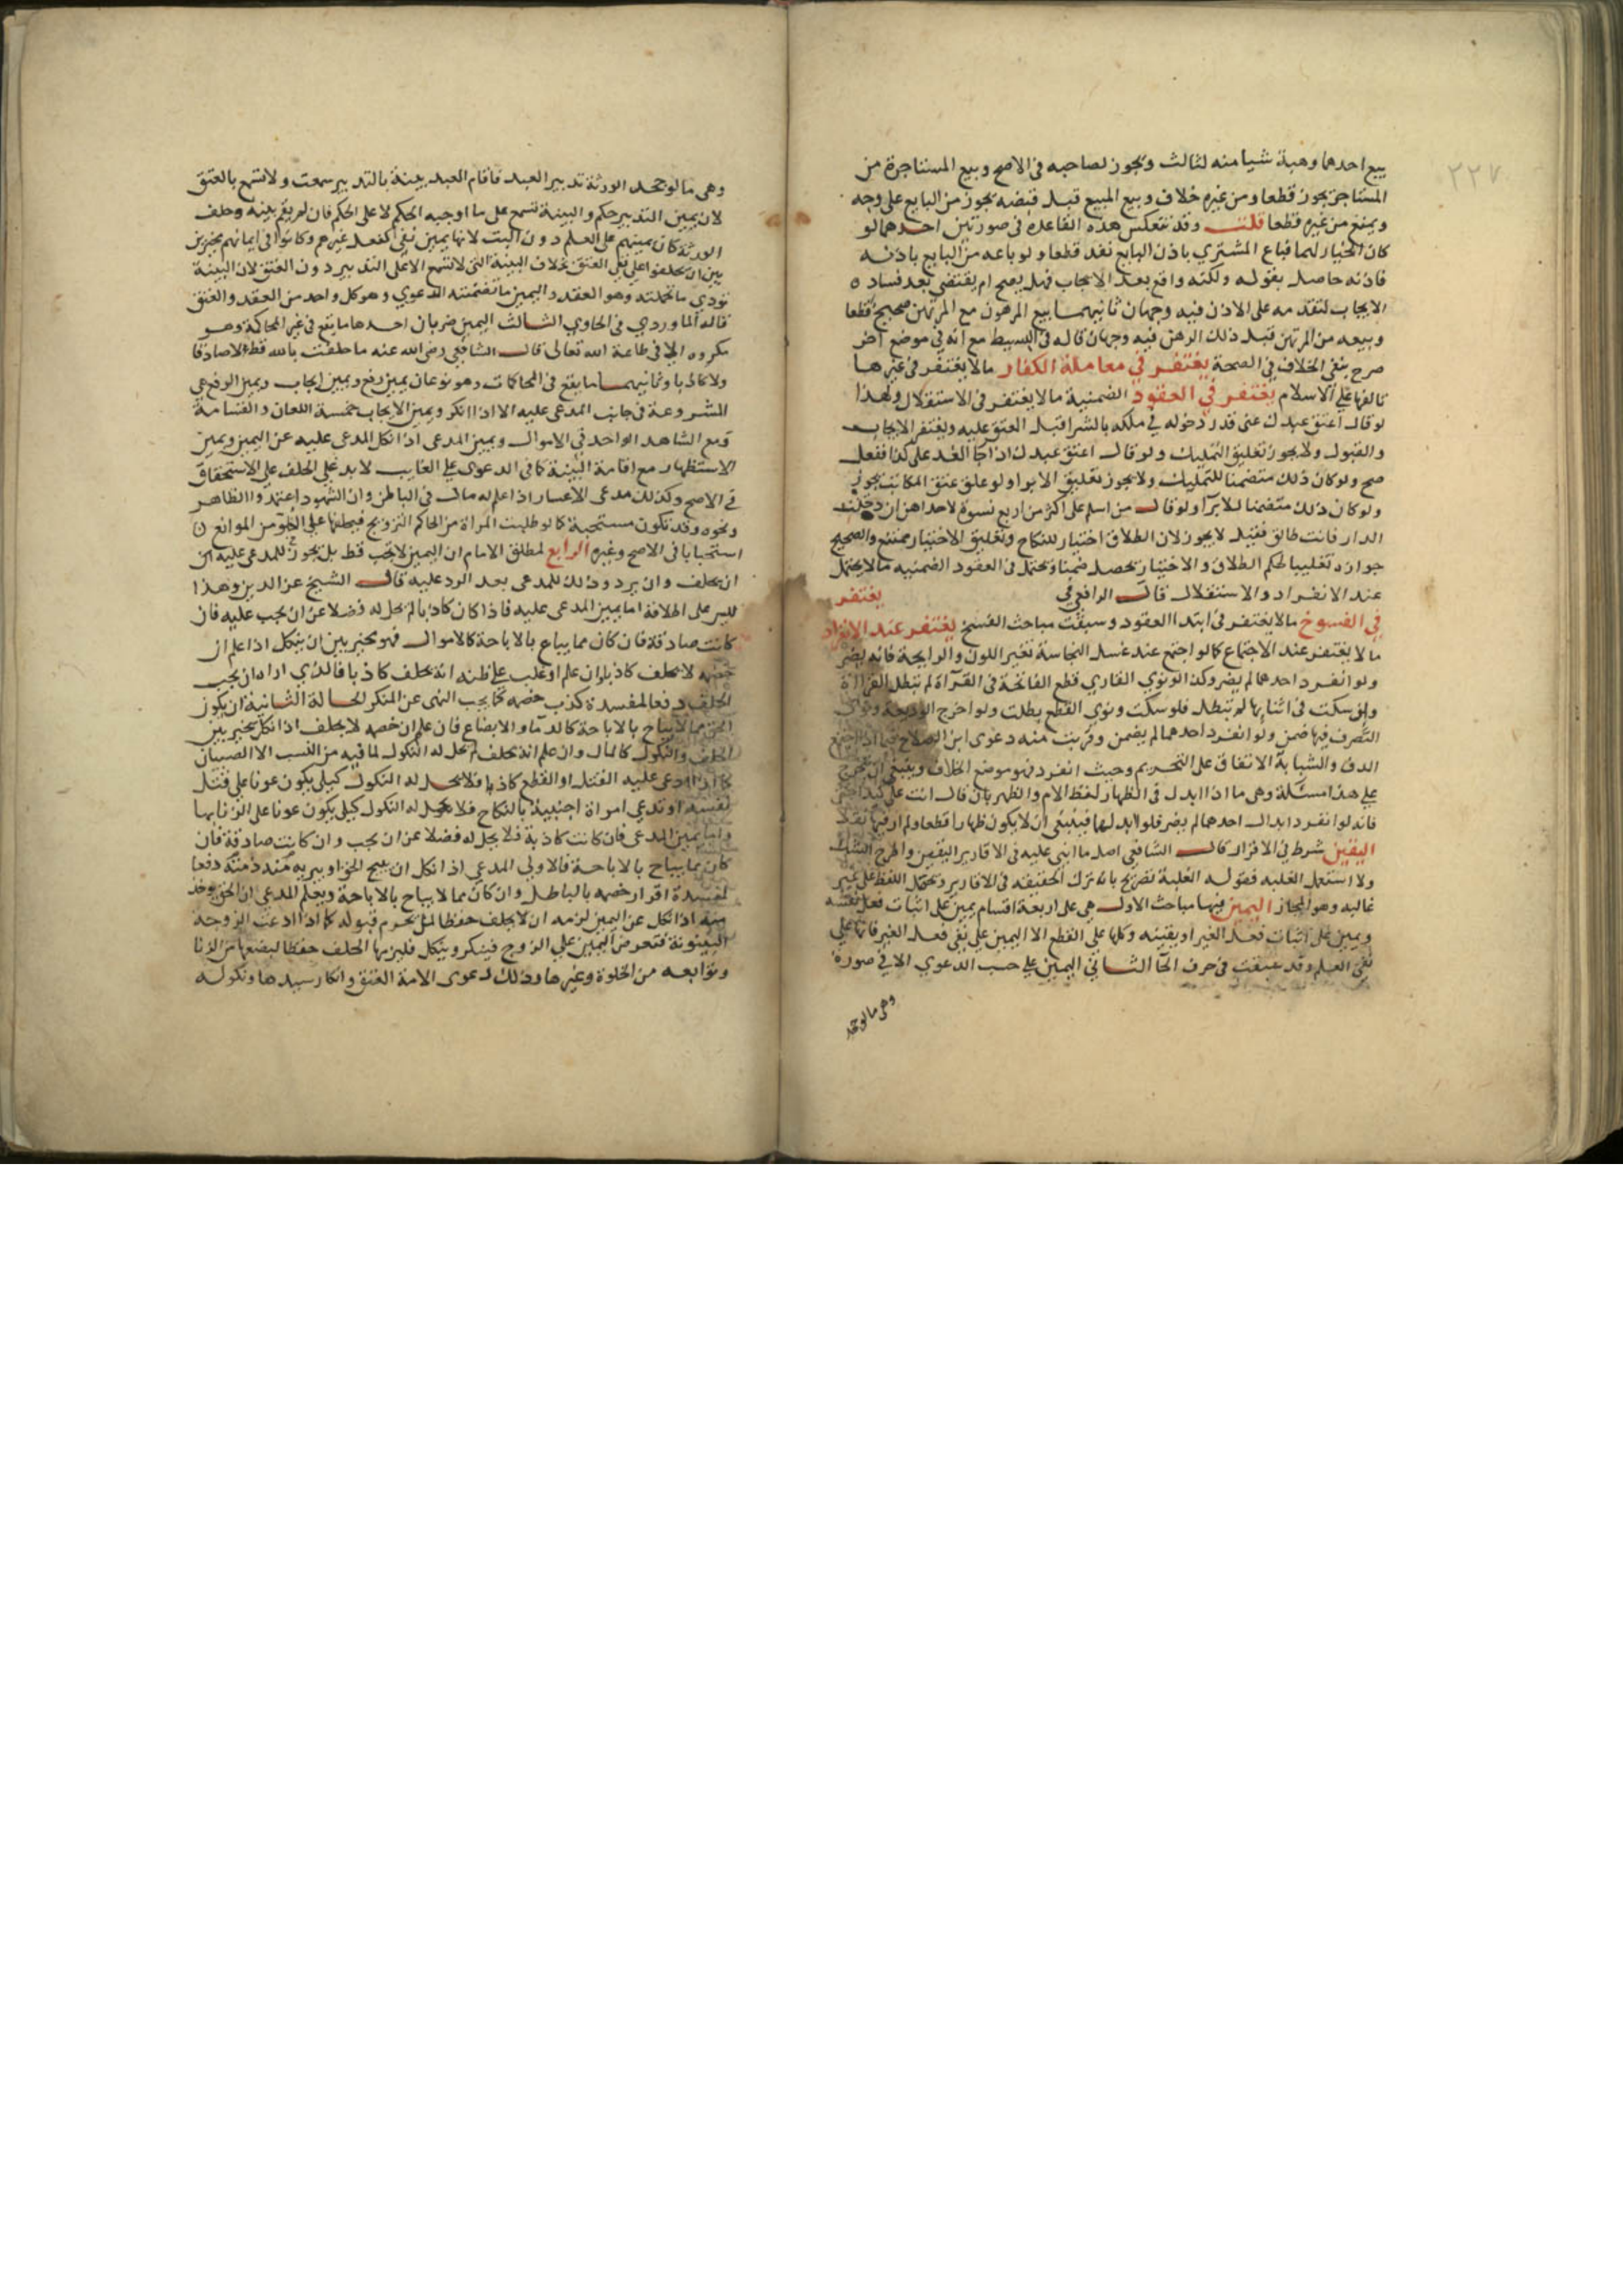 ٢٢٧
بيع احدهما وهبة شيا منه لثالث ويجوز لصاحبه في الاصح وبيع المستاجرة من
المستاجر يجوز قطعا ومن غيره خلاف وبيع المبيع قبل قبضه يجوز من البايع على وجه
ويمنع من غيره قطعا قلت وقد تنعكس هذه القاعدة في صورتين احدهما لو
كان الخيار لهما فباع المشتري باذن البايع نفذ قطعا ولو باعه من البايع باذنه
فاذنه حاصل بقوله ولكنه واقع بعد الايجاب فهل يصح ام يقتضي بعد فساده
الايجاب لتقدمه على الاذن فيه وجهان ثانيهما بيع المرهون مع المرتهن صحيح قطعا
وبيعه من المرتهن قبل ذلك الرهن فيه وجهان قاله في البسيط مع انه في موضع اخر
صرح بنفي الخلاف في الصحة يغتفر في معاملة الكفار مالا يغتفر في غيرها
تالفها على الاسلام يغتفر في العقود الضمنية مالا يغتفر في الاستقلال ولهذا
لو قال اعتق عبدك عني قدر دخوله في ملكه بالشرا قبل العتق عليه ويغتفر الايجاب
والقبول ولا يجوز تعليق التمليك ولو قال اعتق عبدك اذا جا الغد على كذا ففعل
صح ولو كان ذلك متضمنا للتمليك ولا يجوز تعليق الابرا ولو علق عتق المكاتب يجوز
ولو كان ذلك متضمنا للابرآ ولو قال من اسلم على اكثر من اربع نسوة لاحداهن ان دخلت
الدار فانت طالق فقيل لا يجوز لان الطلاق اختيار للنكاح وتعليق الاختيار ممتنع والصحيح
جوازه تغليبا لحكم الطلاق والاختيار يحصل ضمنا ويحتمل في العقود الضمنيه مالا يحتمل
عند الانفراد والاستقلال قال الرافعي في يغتفر
في الفسوخ مالا يغتفر في ابتدا العقود وسبقت مباحث الفسخ يغتفر عند الانفراد
مالا يغتفر عند الاجتماع كما لو اجتمع عند غسل النجاسة تغير اللون والرايحة فانه يضر
ولو انفرد احدهما لم يضر وكذا لو نوي القاري قطع الفاتحة في القرآة لم تبطل القراة
ولو سكت في اثنايها لم تبطل فلو سكت ونوي القطع بطلت ولو اخرج الوديعة ونوى
التصرف فيها ضمن ولو انفرد احدهما لم يضمن وقربت منه دعوى ابن الصلاح فيما اذا اجتمع
الدف والشبابة الاتفاق على التحريم وحيث انفرد فهو موضع الخلاف وينبغي ان يخرج
على هذا مسئلة وهي ما اذا ابدل في الظهار لفظ الام والظهر بان قال انت علي كيد اختي
فانه لو انفرد ابدال احدهما لم يضر فلو ابدلهما فينبغي ان لا يكون ظهارا قطعا ولم ار فيها نقلا
اليقين شرط في الاقرار قال الشافعي اصل ما ابني عليه في الاقارير اليقين واطرح الشك
ولا استعمل الغلبه فقوله الغلبة تصريح بانه ترك الحقيقه في الاقارير وتحمل اللفظ على غير
غالبه وهو المجاز اليمين فيها مباحث الاول هي على اربعة اقسام يمين على اثبات فعل نفسه
ويمين على اثبات فعل الغير او بقيته وكلها على القطع الا اليمين على نفي فعل الغير فانها على
نفي العلم وقد سبقت في حرف الحآ الثاني اليمين على حسب الدعوي الا في صورة
وهي ما لو جحد
وهي ما لو جحد الورثة تدبير العبد فاقام العبد بينة بالتدبير سمعت ولا تسمع بالعتق
لان يمين التدبير حكم والبينة تسمع على ما اوجبه الحكم لا على الحكم فان لم يقم بينة وحلف
الورثة كان يمينهم على العلم دون البت لانها يمين نفي لفعل غيرهم وكانوا في ايمانهم مخيرين
بين ان يحلفوا على نفي العتق بخلاف البينة التي لا تسمع الا على التدبير دون العتق لان البينة
تودي ما تحملته وهو العقد واليمين ما تضمنته الدعوي وهو كل واحد من العقد والعتق
قاله الماوردي في الحاوي الثالث اليمين ضربان احدهما ما يقع في غير المحاكمة وهو
مكروه الا في طاعة الله تعالى قال الشافعي رضي الله عنه ما حلفت بالله قط لا صادقا
ولا كاذبا وثانيهما ما يقع في المحاكمات وهو نوعان يمين دفع ويمين ايجاب ويمين الدفع هي
المشروعة في جانب المدعى عليه الا اذا انكر ويمين الايجاب خمسة اللعان والقسامة
ومع الشاهد الواحد في الاموال ويمين المدعى اذا نكل المدعى عليه عن اليمين ويمين
الاستظهار مع اقامة البينة كما في الدعوى على الغايب لا بد على الحلف على الاستحقاق
في الاصح وكذلك مدعى الاعسار اذا علم له مال في الباطن وان الشهود اعتمدوا الظاهر
ونحوه وقد تكون مستحبة كما لو طلبت المراة من الحاكم التزويج فيحلفها على الخلو من الموانع
استحبابا في الاصح وغيره الرابع لمطلق الامام ان اليمين لا تجب قط بل يجوز للمدعى عليه ان
ان يحلف وان يرد وذلك للمدعى بعد الرد عليه قال الشيخ عز الدين وهذا
ليس على اطلاقه اما يمين المدعى عليه فاذا كان كاذبا لم تحل له فضلا عن ان يجب عليه فان
كانت صادقة فان كان مما يباح بالاباحة كالاموال فهو مخير بين ان ينكل اذا علم ان
خصمه لا يحلف كاذبا وان علم او غلب على ظنه انه يحلف كاذبا فالذي اراه ان يجب
الحلف دفعا لمفسدة كذب خصمه كما يجب النهى عن المنكر الحالة الثانية ان يكون
الحق مما لا يباح بالاباحة كالدمآ والابضاع فان علم ان خصمه لا يحلف اذا نكل تخير بين
الحلف والنكول كالمال وان علم انه يحلف لم تحل له النكول لما فيه من التسبب الا العصيان
كما اذا ادعى عليه القتل او القطع كاذبا فلا يحل له النكول كيلا يكون عونا على قتل
نفسه او تدعي امراة اجنبية بالنكاح فلا يحل له النكول كيلا يكون عونا على الزنا بها
واما يمين المدعى فان كانت كاذبة فلا يحل له فضلا عن ان يجب وان كانت صادقة فان
كان مما يباح بالاباحة فالاولى المدعي اذا نكل ان يبيح الحق او يبريه منه دفعا
لمفسدة اقرار خصمه بالباطل وان كان مما لا يباح بالاباحة ويعلم المدعي ان الحق يوخذ
منه اذا نكل عن اليمين لزمه ان لا يحلف حفظا لما يحرم قبوله كما اذا ادعت الزوجة
البينونة فتعرض اليمين على الزوج فينكر وينكل فليزمها الحلف حفظا لبضعها من الزنا
وتوابعه من الخلوة وغيرها وذلك لدعوى الامة العتق وانكار سيدها ونكوله